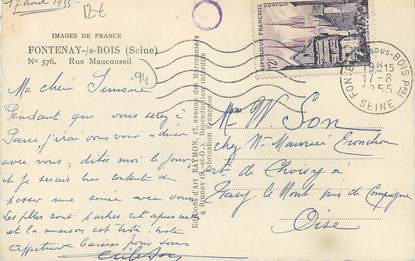 17 août 1955
12-E
IMAGES DE FRANCE
FONTENAY-/s-BOIS (Seine)
N° 576. Rue Mauconseil
94
Ma chère Simone
Pendant que vous serez à
Paris, j'irai vous voir
avec vous, dites moi le jour
et je serais bien contente de
passer une soirée avec vous
Les filles sont parties cet après midi
et la maison est triste, triste
Affectueux baisers pour vous
Editions d'Art RAYMON, 17, avenue des Marronniers
4 Brunoy (S.-et-O.)
REPUBLIQUE FRANÇAISE
12F
FONTENAY-SOUS-BOIS PPAL
18H15
17-8
1955
SEINE
Mme W. Son
chez Me Maurice
de Choisy à
Tracy le Mont près de Compiègne
Oise